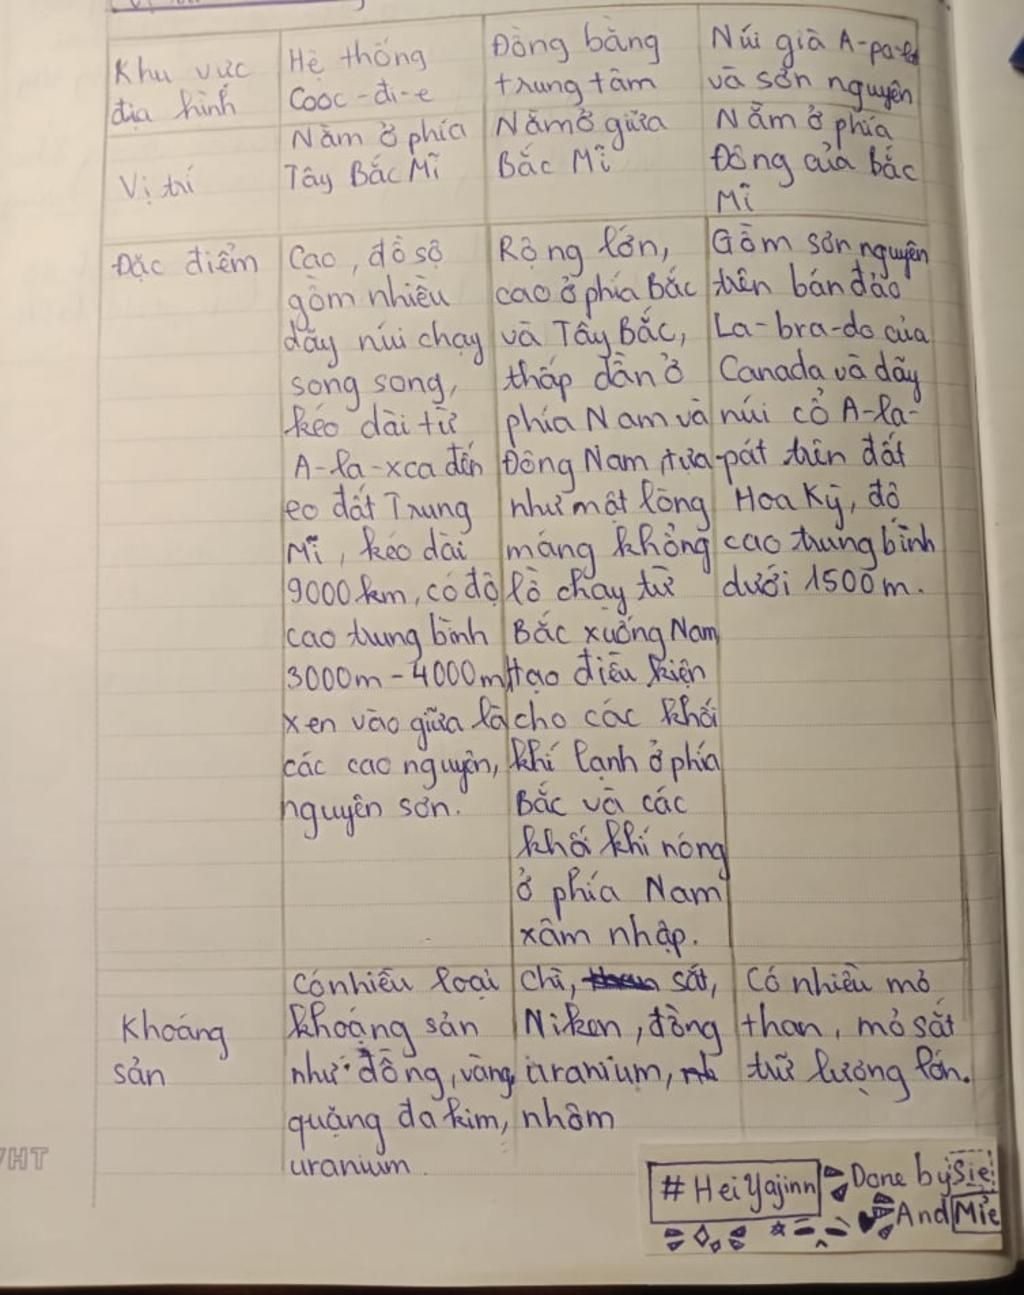 Khu vực
địa hình
Hệ thống
Cooc-đi-e
Đồng bằng
trung tâm
Núi già A-pa-lat
và sơn nguyên
Vị trí
Nằm ở phía
Tây Bắc Mĩ
Nằm ở giữa
Bắc Mĩ
Nằm ở phía
Đông của Bắc
Mĩ
Đặc điểm
Cao, đồ sộ
gồm nhiều
dãy núi chạy
song song,
kéo dài từ
A-la-xca đến
eo đất Trung
Mĩ, kéo dài
9000km, có độ
cao trung bình
3000m - 4000m,
xen vào giữa là
các cao nguyên,
nguyên sơn.
Rộng lớn,
cao ở phía Bắc
và Tây Bắc,
thấp dần ở
phía Nam và
Đông Nam, tựa
như một lòng
máng khổng
lồ chạy từ
Bắc xuống Nam
tạo điều kiện
cho các khối
khí lạnh ở phía
Bắc và các
khối khí nóng
ở phía Nam
xâm nhập.
Gồm sơn nguyên
trên bán đảo
La-bra-do của
Canada và dãy
núi cổ A-la-
pát trên đất
Hoa Kỳ, độ
cao trung bình
dưới 1500m.
Khoáng
sản
Có nhiều loại
khoáng sản
như đồng, vàng,
quặng đa kim,
uranium.
Chì, sắt,
Niken, đồng
uranium,
nhôm
Có nhiều mỏ
than, mỏ sắt
trữ lượng lớn.
VHT
#HeiYajinn
Done by Sie
And Mie